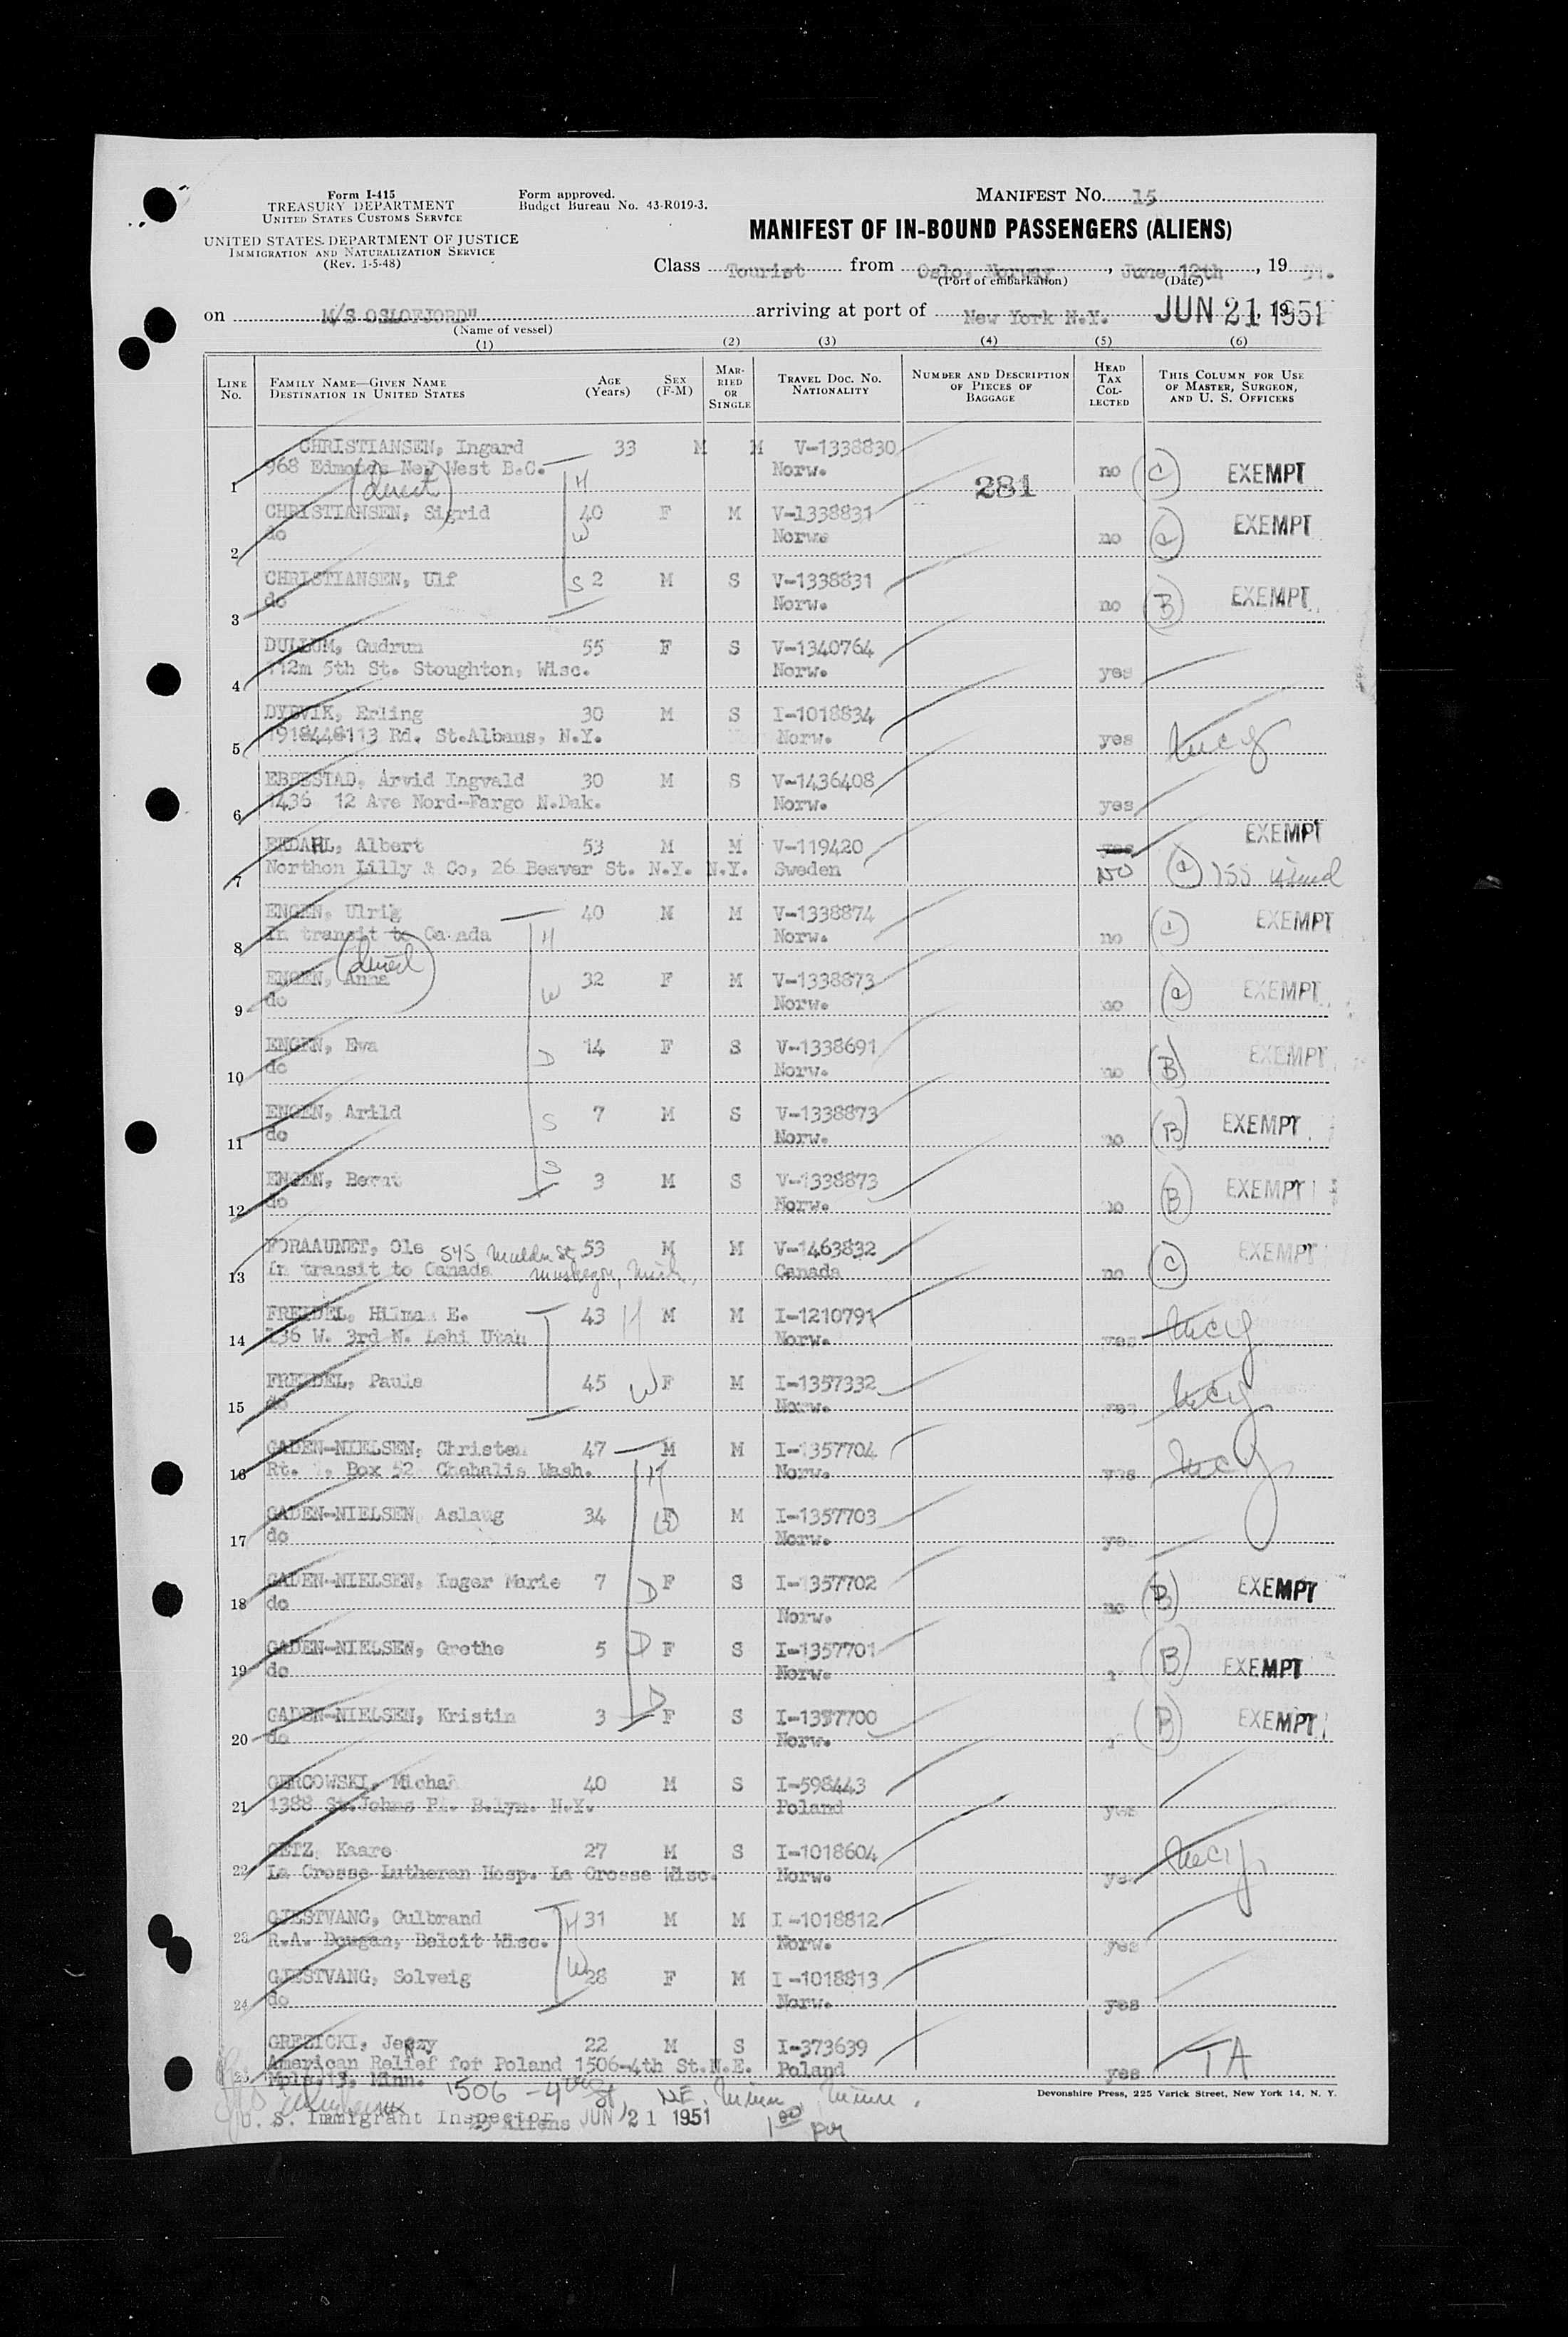 Form I-415
TREASURY DEPARTMENT
UNITED STATES CUSTOMS SERVICE
UNITED STATES DEPARTMENT OF JUSTICE
IMMIGRATION AND NATURALIZATION SERVICE
(Rev. 1-5-48)
Form approved.
Budget Bureau No. 43-R019-3.
MANIFEST NO. 15
MANIFEST OF IN-BOUND PASSENGERS (ALIENS)
Class Tourist from Oslo, Norway, June 12th, 19
(Port of embarkation) (Date)
on M/S OSLOFJORD" arriving at port of New York N.Y. JUN 21 1951
(Name of vessel)
(1) (2) (3) (4) (5) (6)
LINE NO. FAMILY NAME—GIVEN NAME DESTINATION IN UNITED STATES AGE (YEARS) SEX (F-M) MARRIED OR SINGLE TRAVEL DOC. NO. NATIONALITY NUMBER AND DESCRIPTION OF PIECES OF BAGGAGE HEAD TAX COLLECTED THIS COLUMN FOR USE OF MASTER, SURGEON, AND U. S. OFFICERS
CHRISTIANSEN, Ingard 33 M M V-1338830
968 Edmonds New West B.C. Norw. no (C) EXEMPT
1 (direct) H 281
CHRISTIANSEN, Sigrid 40 F M V-1338831 EXEMPT
do W Norw. no (C)
2
CHRISTIANSEN, Ulf S 2 M S V-1338831 EXEMPT
do Norw. no (B)
3
DULLUM, Gudrun 55 F S V-1340764
112m 5th St. Stoughton, Wisc. Norw. yes
4
DYBVIK, Erling 30 M S I-1018834
St.Albans, N.Y. Norw. yes
5
Arvid Ingvald 30 M S V-1436408
1436 12 Ave Nord-Fargo N.Dak. Norw. yes
6
EKDAHL, Albert 53 M M V-119420 yes EXEMPT
Northon Lilly & Co, 26 Beaver St. N.Y. N.Y. Sweden NO
7
ENGEN, Ulrig 40 M M V-1338874 EXEMPT
In transit to Canada H Norw. no
8 (direct)
ENGEN, Anna 32 F M V-1338873 EXEMPT
do W Norw. no (C)
9
ENGEN, Eva 14 F S V-1338691 EXEMPT
do D Norw. no (B)
10
ENGEN, Arild 7 M S V-1338873 EXEMPT
do S Norw. no (B)
11
ENGEN, Bernt 3 M S V-1338873 EXEMPT
do S Norw. no (B)
12
FORAAUNET, Ole 545 St 53 M M V-1463832 EXEMPT
In transit to Canada Muskegon, Mich. Canada no (C)
13
FREIDEL, Hilman E. 43 H M M I-1210791
136 W. 3rd N. Lehi Utah Norw. yes
14
FREIDEL, Paula 45 W F M I-1357332
do Norw. yes
15
GADEN-NIELSEN, Christen 47 M M I-1357704
Rt. 1, Box 52 Chahalis Wash. H Norw. yes
16
GADEN-NIELSEN, Aslaug 34 W F M I-1357703
do Norw. yes
17
GADEN-NIELSEN, Inger Marie 7 D F S I-1357702 EXEMPT
do Norw. no (B)
18
GADEN-NIELSEN, Grethe 5 D F S I-1357701
do Norw. (B) EXEMPT
19
GADEN-NIELSEN, Kristin 3 D F S I-1357700 EXEMPT
do Norw. (B)
20
GERCOWSKI, Michal 40 M S I-598443
1388 St.Johns Pl. B.lyn. N.Y. Poland yes
21
GETZ, Kaare 27 M S I-1018604
La Crosse Lutheran Hosp. La Crosse Wisc. Norw. yes
22
GJESTVANG, Gulbrand H 31 M M I-1018812
R.A. Dougan, Beloit Wisc. Norw. yes
23
GJESTVANG, Solveig W 28 F M I-1018813
do Norw. yes
24
GREZICKI, Jerzy 22 M S I-373639
American Relief for Poland 1506-4th St.N.E. Poland yes TA
Mpls.13, Minn.
25
1506 - 4th St, NE, Minn, Minn.
Devonshire Press, 225 Varick Street, New York 14, N. Y.
U. S. Immigrant Inspector JUN 21 1951
25 Aliens